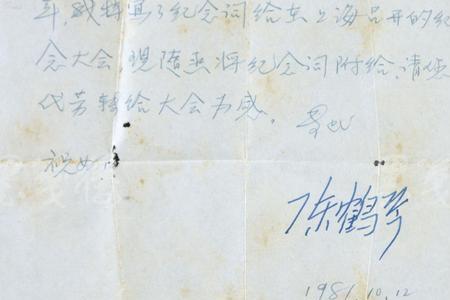 年,我特写了纪念词给在上海召开的纪
念大会,现随燕将纪念词附给,请您
代劳转给大会为感。
祝好
陈鹤琴
1981.10.12